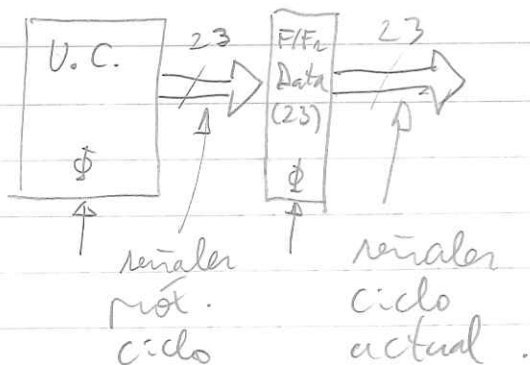 U. C.
Φ
23
F/Fs
Data
(23)
Φ
23
señales
próx.
ciclo
señales
ciclo
actual.